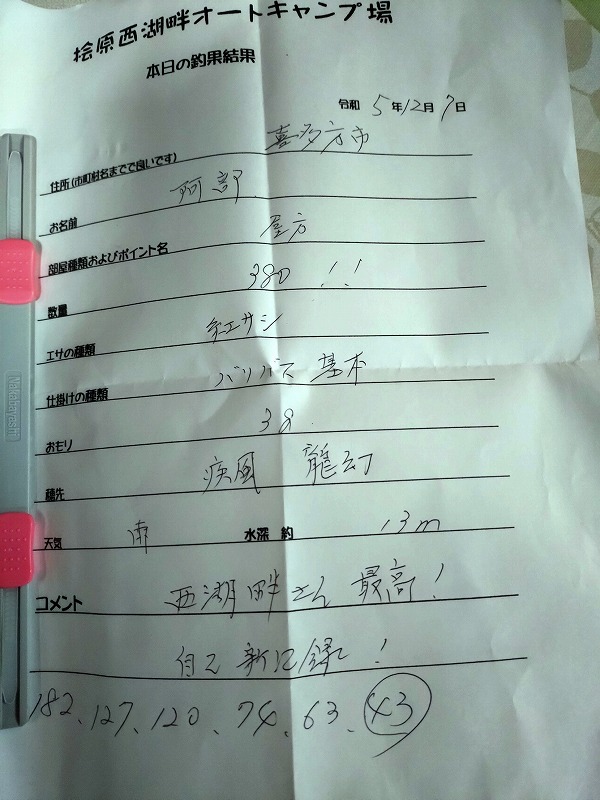 桧原西湖畔オートキャンプ場
本日の釣果結果
令和 5年12月7日
住所(市町村名までで良いです) 喜多方市
お名前 阿部
部屋種類およびポイント名 屋方
数量 380 !!
エサの種類 紅サシ
仕掛けの種類 バリバス 基本
おもり 3g
穂先 疾風 龍幻
天気 雨 水深 約 13m
コメント 西湖畔さん 最高!
自己新記録!
182、127、120、74、63、43
Nakabayashi